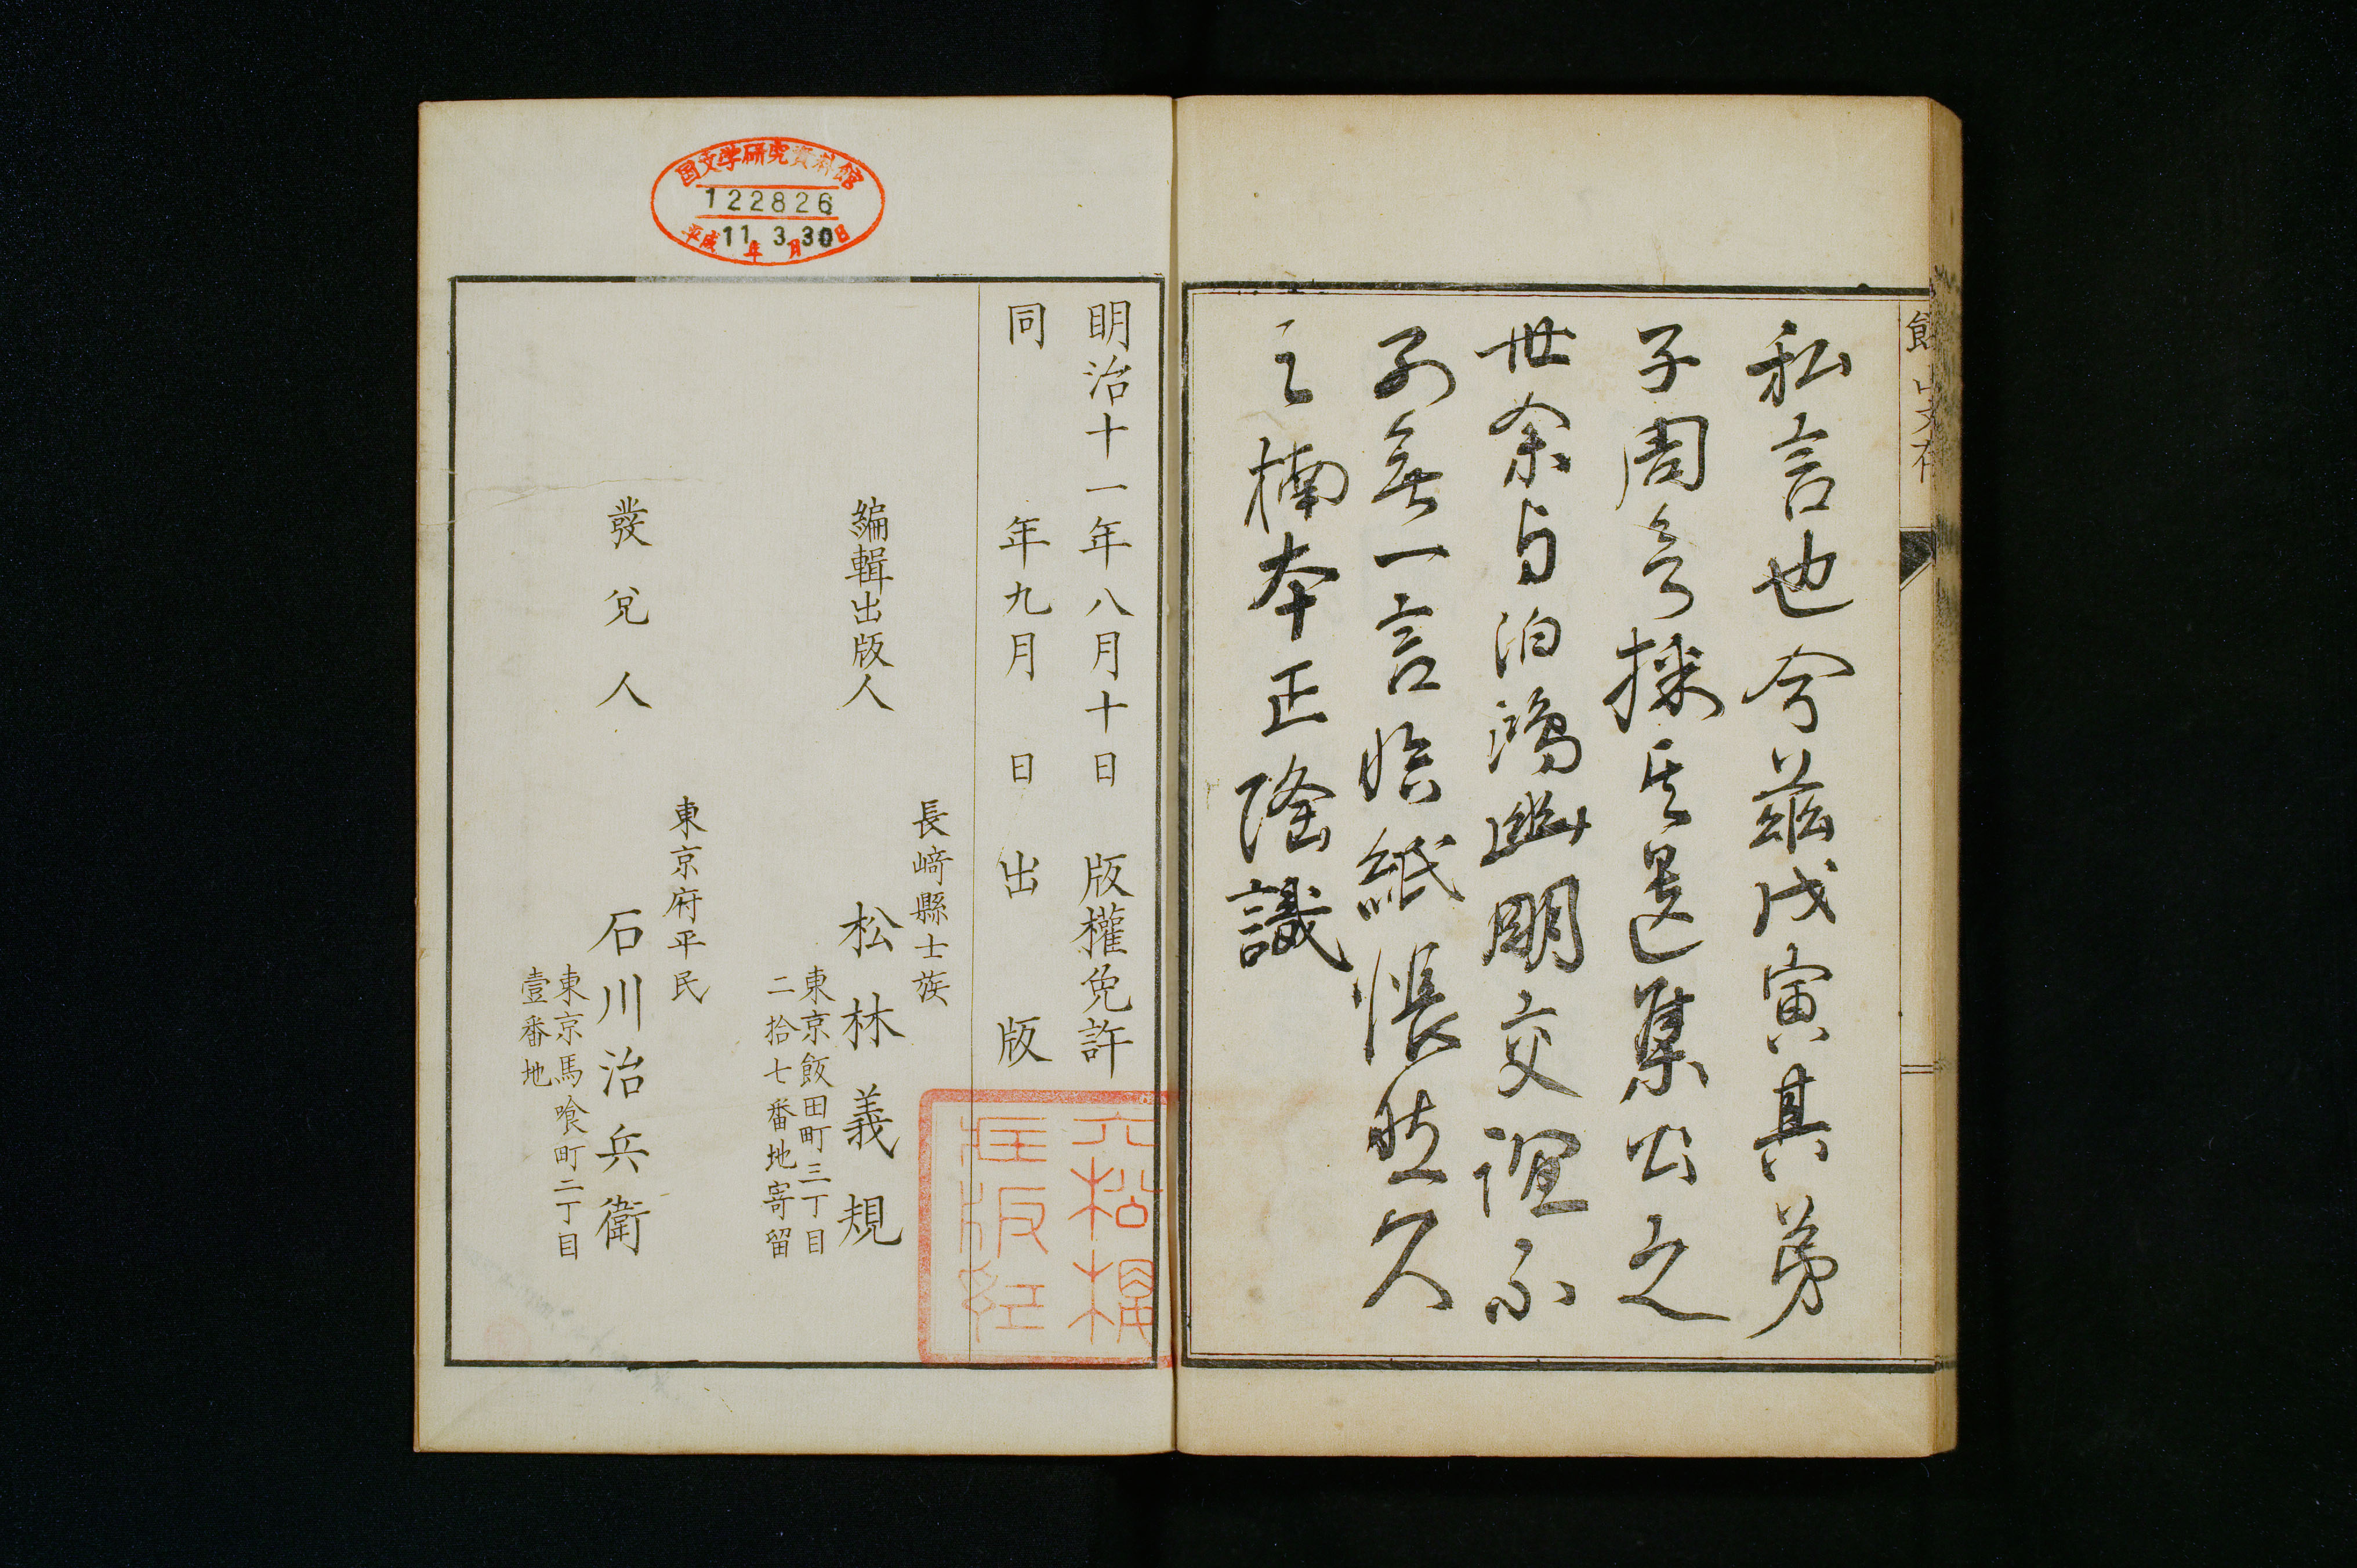 私言也今茲戊寅其弟
子周等採其遺集公之
世余与泊鴻幽明交誼不
可無一言臨紙悵然久
之楠本正隆識
国文学研究資料館
122826
平成11年3月30日
明治十一年八月十日版權免許
同年九月日出版
長崎縣士族
編輯出版人 松林義規
東京飯田町三丁目
二拾七番地寄留
東京府平民
發兌人 石川治兵衛
東京馬喰町二丁目
壹番地